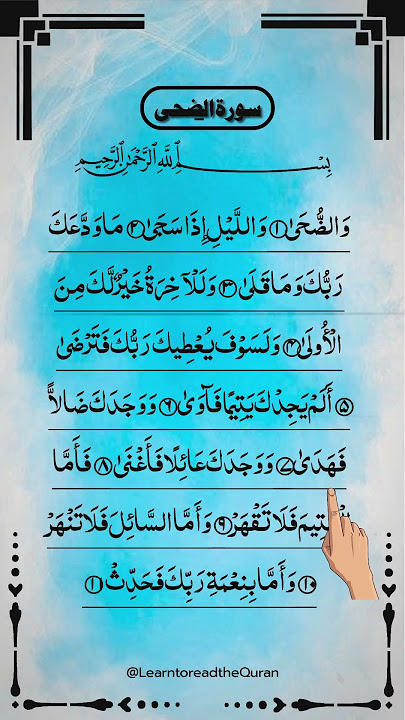 سورة الضحى
بِسْمِ اللَّهِ الرَّحْمَٰنِ الرَّحِيمِ
وَالضُّحَىٰ ١ وَاللَّيْلِ إِذَا سَجَىٰ ٢ مَا وَدَّعَكَ
رَبُّكَ وَمَا قَلَىٰ ٣ وَلَلْآخِرَةُ خَيْرٌ لَّكَ مِنَ
الْأُولَىٰ ٤ وَلَسَوْفَ يُعْطِيكَ رَبُّكَ فَتَرْضَىٰ
٥ أَلَمْ يَجِدْكَ يَتِيمًا فَآوَىٰ ٦ وَوَجَدَكَ ضَالاًّ
فَهَدَىٰ ٧ وَوَجَدَكَ عَائِلًا فَأَغْنَىٰ ٨ فَأَمَّا
فَلَا تَقْهَرْ ٩ وَأَمَّا السَّائِلَ فَلَا تَنْهَرْ
١٠ وَأَمَّا بِنِعْمَةِ رَبِّكَ فَحَدِّثْ ١
@LearntoreadtheQuran